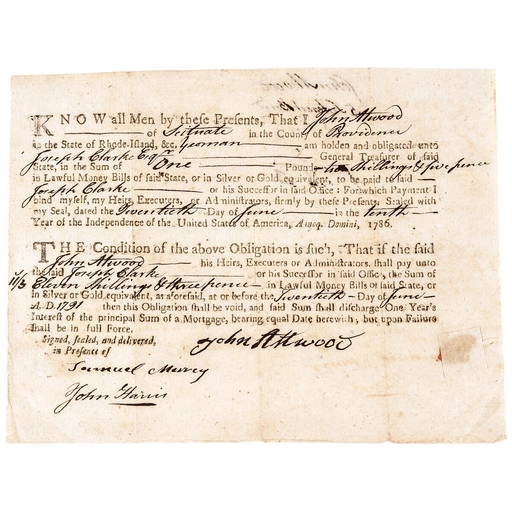 KNOW all Men by these Presents, That I John Atwood
of Scituate in the County of Providence
in the State of Rhode-Island, &c. Yeoman am holden and obligated unto
Joseph Clarke Esqr General Treasurer of said
State, in the Sum of One Pound two Shillings & five pence
in Lawful Money Bills of said State, or in Silver or Gold equivalent, to be paid to said
Joseph Clarke or his Successor in said Office: For which Payment I
bind myself, my Heirs, Executors, or Administrators, firmly by these Presents. Sealed with
my Seal, dated the Twentieth Day of June in the tenth
Year of the Independence of the United States of America, Anno Domini, 1786.
THE Condition of the above Obligation is such, That if the said
John Atwood his Heirs, Executors or Administrators, shall pay unto
the said Joseph Clarke or his Successor in said Office, the Sum of
11/3 Eleven Shillings & three pence in Lawful Money Bills of said State, or
in Silver or Gold equivalent, as aforesaid, at or before the Twentieth Day of June
A. D. 1791 then this Obligation shall be void, and said Sum shall discharge One Year's
Interest of the principal Sum of a Mortgage, bearing equal Date herewith; but upon Failure
shall be in full Force.
Signed, sealed, and delivered,
in Presence of
John Attwood
Samuel
John Harris